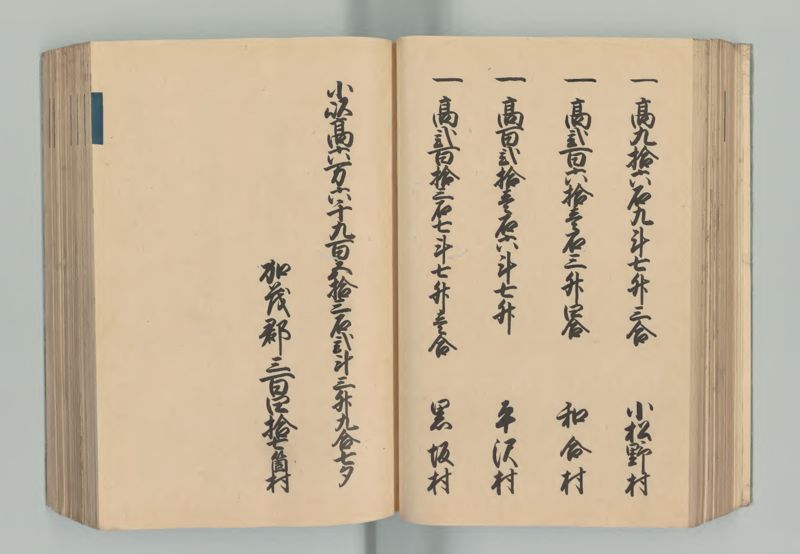 一 高九拾六石九斗七升三合 小松野村
一 高弐百六拾壱石三升四合 和合村
一 高百弐拾壱石六斗七升 平沢村
一 高弐百拾三石七斗七升壱合 黒坂村
小以高六万六千九百五拾三石弐斗三升九合七夕
加茂郡三百四拾七箇村